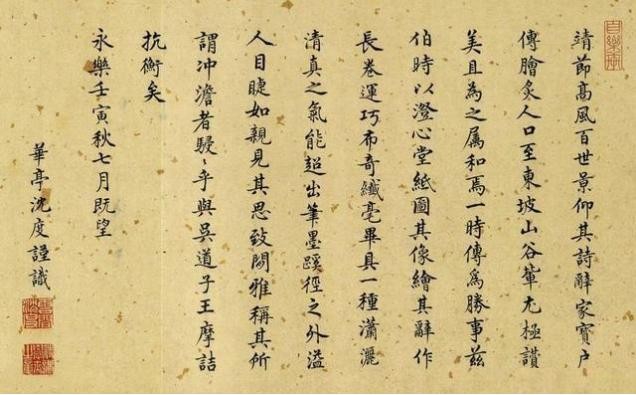 靖節高風百世景仰其詩辭家寶戶
傳膾炙人口至東坡山谷軰尤極讃
美且為之属和焉一時傳爲勝事兹
伯時以澄心堂紙圖其像繪其辭作
長卷運巧布奇纖毫畢具一種瀟灑
清真之氣能超出筆墨蹊徑之外溢
人目睫如親見其思致閑雅稱其所
謂冲澹者駸〻乎與吳道子王摩詰
抗衡矣
永樂壬寅秋七月既望
華亭沈度謹識